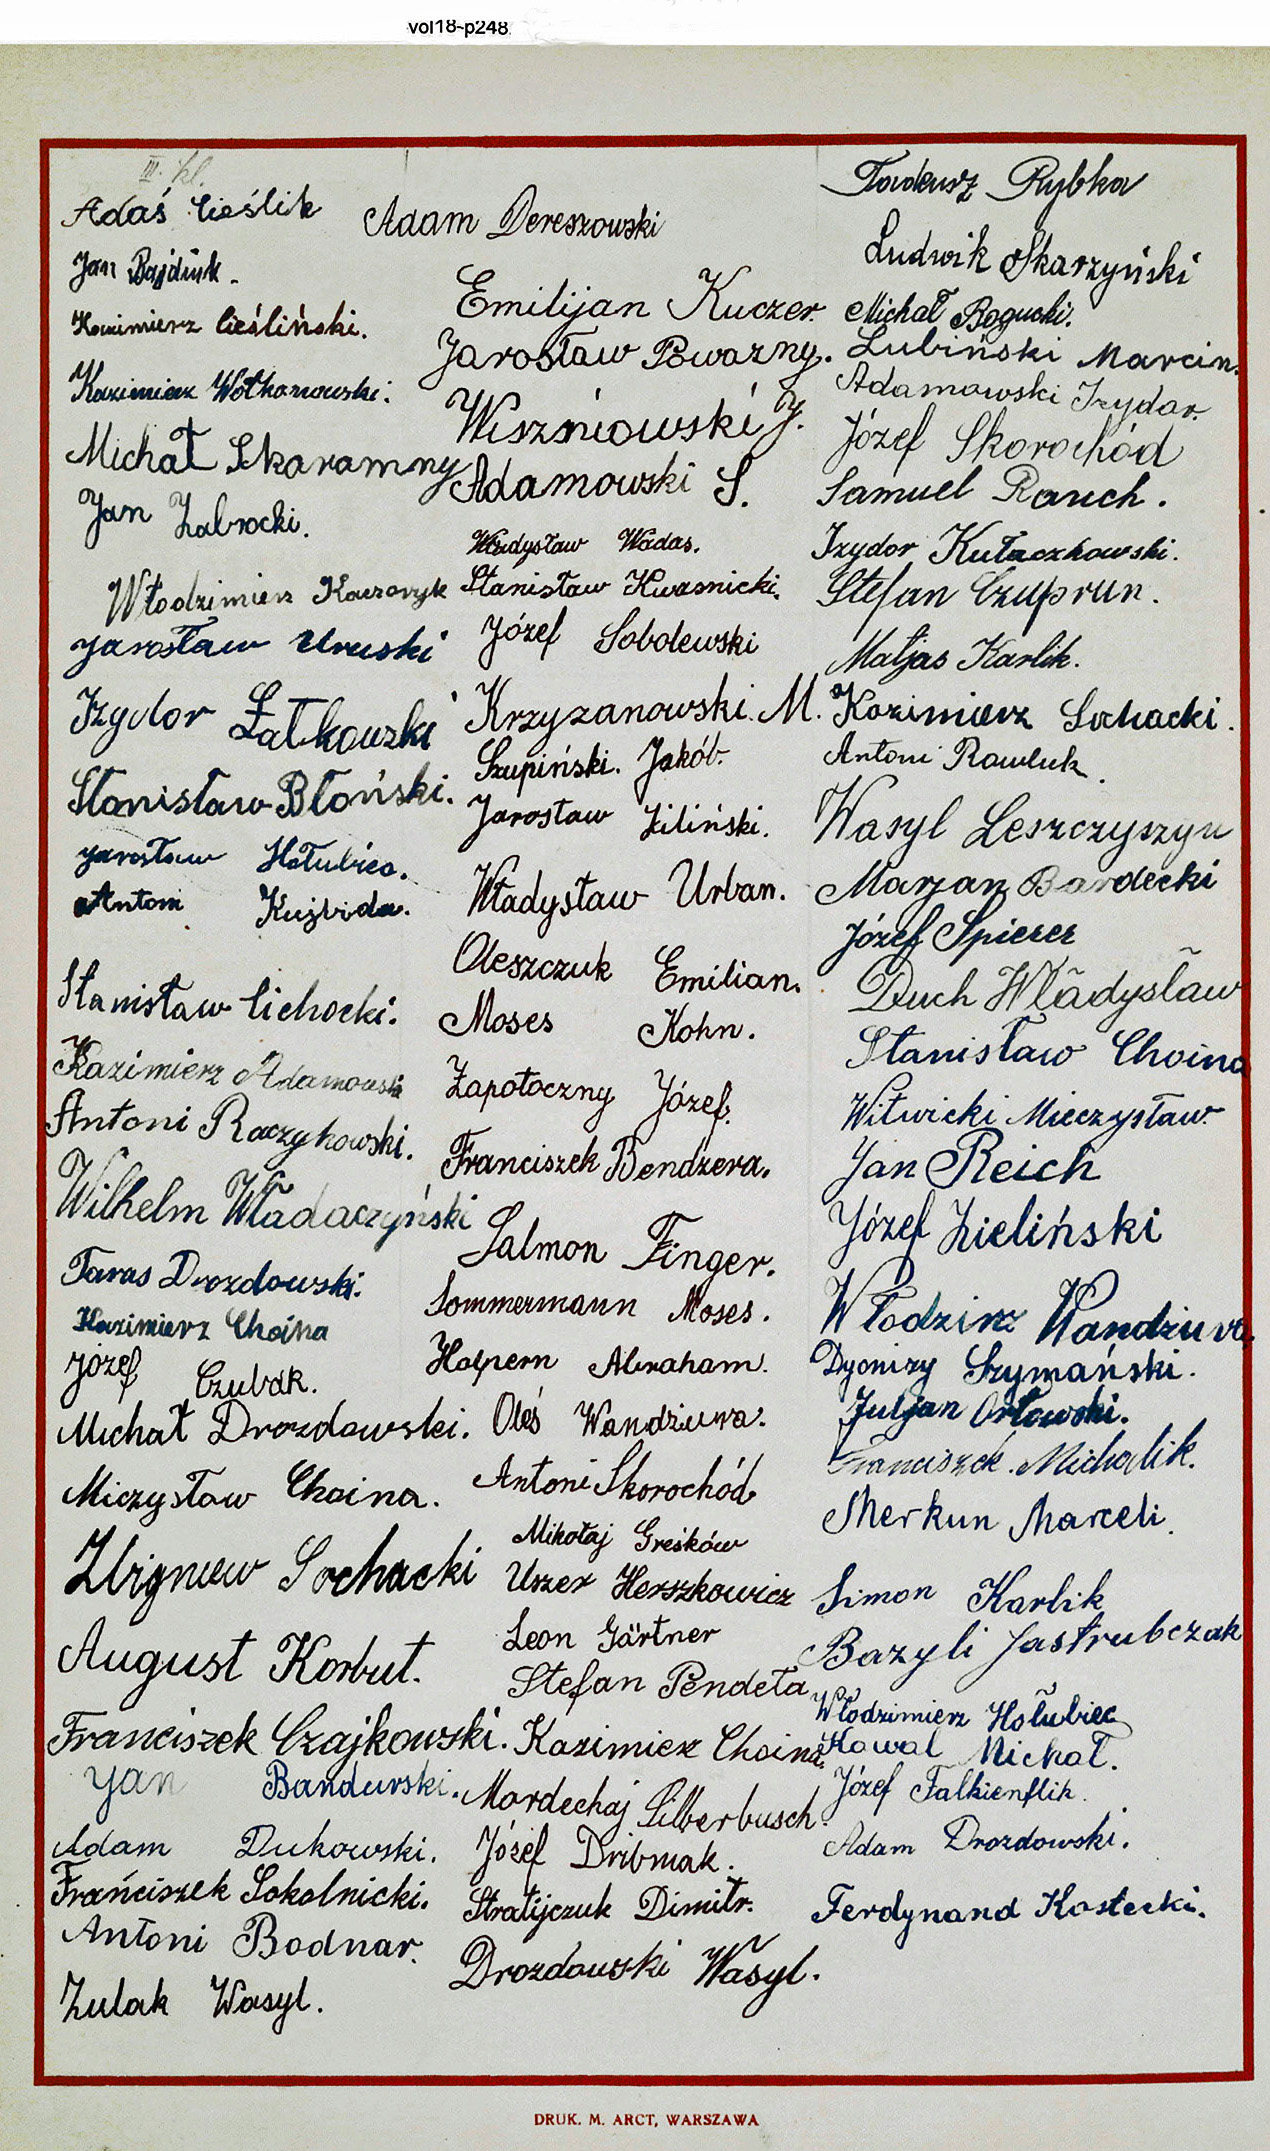 vol18-p248
III. kl.
Adaś Cieślik
Jan Bajdiuk.
Kazimierz Cieśliński.
Kazimierz Wołkanowski.
Michał Skaramny
Jan Zabrocki.
Włodzimierz Kaczaryk
Jarosław Uruski
Izydor Łatkowski
Stanisław Błoński.
Jarosław Hołubiec.
Antoni Kujbida.
Stanisław Cichocki.
Kazimierz Adamowski
Antoni Raczykowski.
Wilhelm Władaczyński
Taras Drozdowski.
Kazimierz Choina
Józef Czubak.
Michał Drozdowski.
Miczysław Choina.
Zbigniew Sochacki
August Korbut.
Franciszek Czajkowski.
Jan Bandurski.
Adam Dukowski.
Franciszek Sokolnicki.
Antoni Bodnar.
Zulak Wasyl.
Adam Dereszowski
Emilijan Kuczer.
Jarosław Powazny.
Wiszniowski J.
Adamowski S.
Władysław Wadas.
Stanisław Kwasnicki.
Józef Sobolewski
Krzyzanowski. M.
Szupiński. Jakób.
Jarosław Ziliński.
Władysław Urban.
Oleszczuk Emilian.
Moses Kohn.
Zapotoczny Józef.
Franciszek Bendzera.
Salmon Finger.
Sommermann Moses.
Halpern Abraham.
Oleś Wandziura.
Antoni Skorochód
Mikołaj Greśków
Uszer Herszkowicz
Leon Gärtner
Stefan Pendeta
Kazimierz Choina.
Mordechaj Silberbusch
Józef Dribmak.
Stratijczuk Dimitr.
Drozdowski Wasyl.
Tadeusz Rybka
Ludwik Skarzyński
Michał Bogucki.
Lubiński Marcin.
Adamowski Izydor.
Józef Skorochód
Samuel Rauch.
Izydor Kułaczkowski.
Stefan Czuprun.
Matjas Karlik.
Kazimierz Sochacki.
Antoni Rawluk.
Wasyl Leszczyszyn
Marjan Bardecki
Józef Spierer
Duch Władysław
Stanisław Choina
Witwicki Mieczysław
Jan Reich
Józef Zieliński
Włodzimż Wandziura.
Dyonizy Szymański.
Juljan Orłowski.
Franciszek. Michalik.
Merkun Marceli.
Simon Karlik
Bazyli Jastrubczak
Włodzimierz Hołubiec
Kowal Michał.
Józef Falkienflik.
Adam Drozdowski.
Ferdynand Kostecki.
DRUK. M. ARCT, WARSZAWA